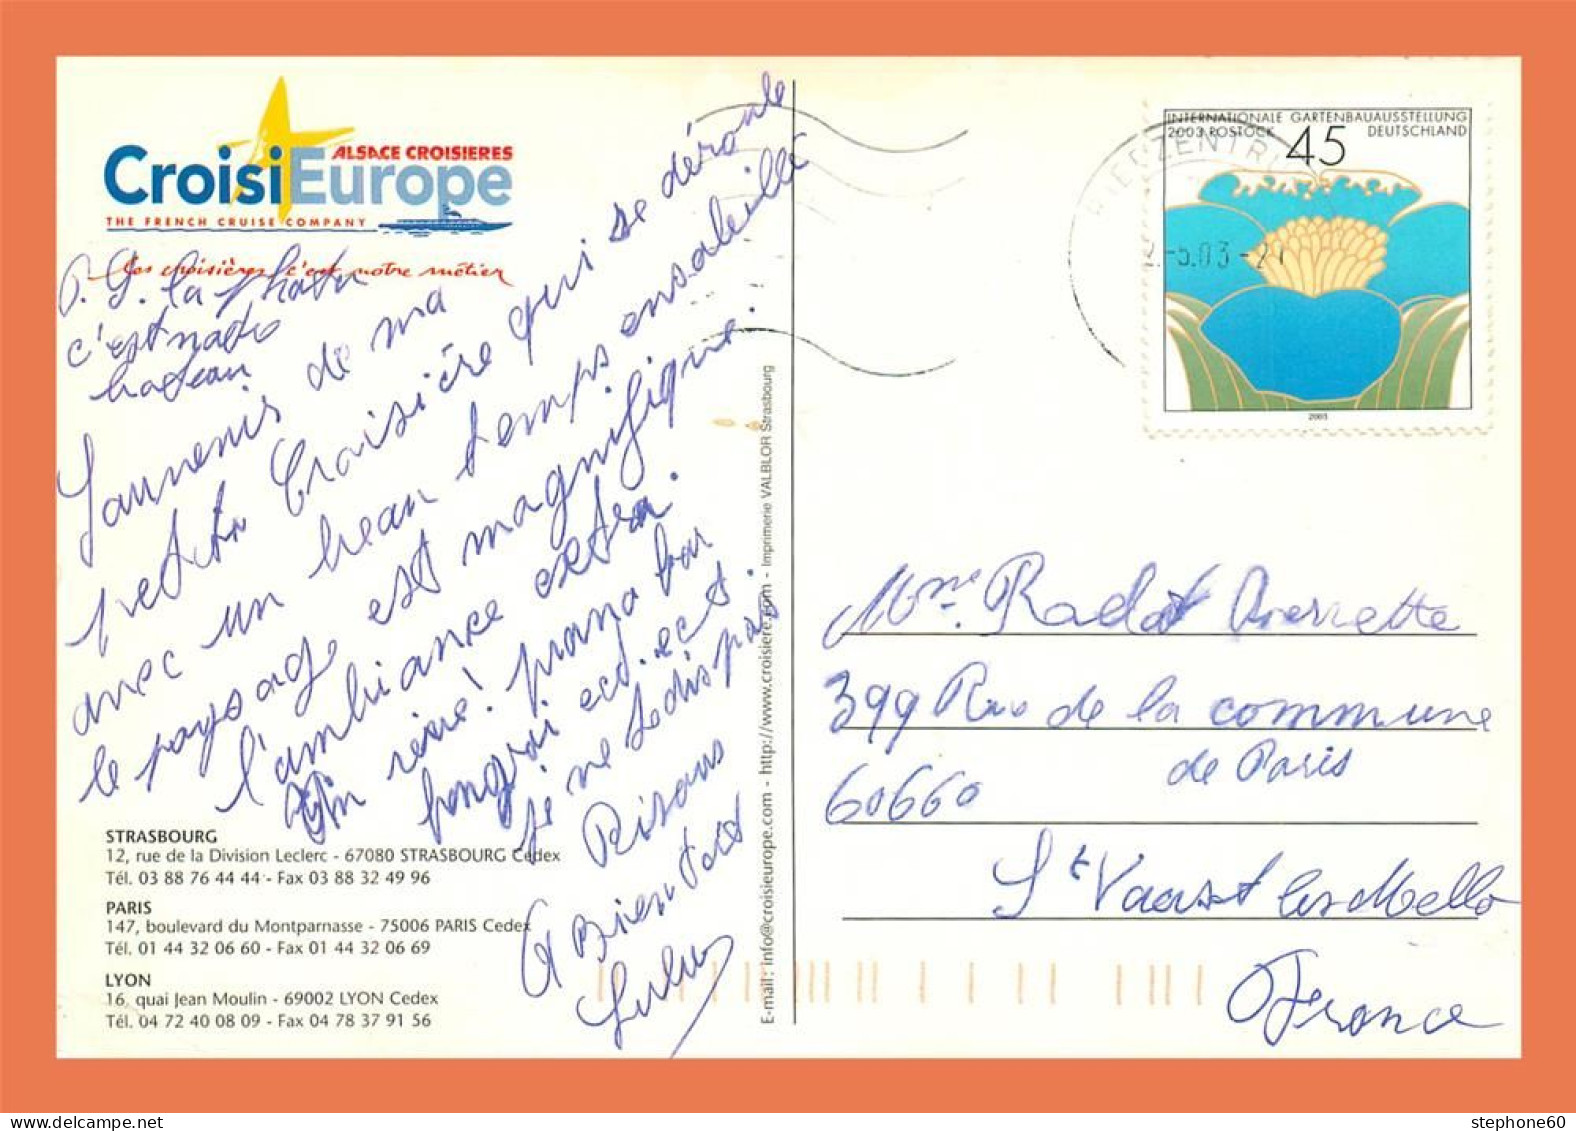 CroisiEurope
ALSACE CROISIERES
THE FRENCH CRUISE COMPANY
Les croisières, c'est notre métier
P.S. la photo
c'est notre
bateau
Souvenir de ma
petite Croisière qui se déroule
avec un beau temps ensoleillé
le paysage est magnifique.
l'ambiance extra.
Un rêve!
ect. ect.
je ne te dis pas
Bisous
A Bientôt
Lulu
STRASBOURG
12, rue de la Division Leclerc - 67080 STRASBOURG Cedex
Tél. 03 88 76 44 44 - Fax 03 88 32 49 96
PARIS
147, boulevard du Montparnasse - 75006 PARIS Cedex
Tél. 01 44 32 06 60 - Fax 01 44 32 06 69
LYON
16, quai Jean Moulin - 69002 LYON Cedex
Tél. 04 72 40 08 09 - Fax 04 78 37 91 56
E-mail : info@croisieurope.com - http://www.croisiere.com - Imprimerie VALBLOR Strasbourg
INTERNATIONALE GARTENBAUAUSSTELLUNG
2003 ROSTOCK 45 DEUTSCHLAND
2003
BRIEFZENTRUM
2.-5.03-21
Mme Radot
399 Rue de la commune
de Paris
60660
St Vaast les Mello
France
stephone60